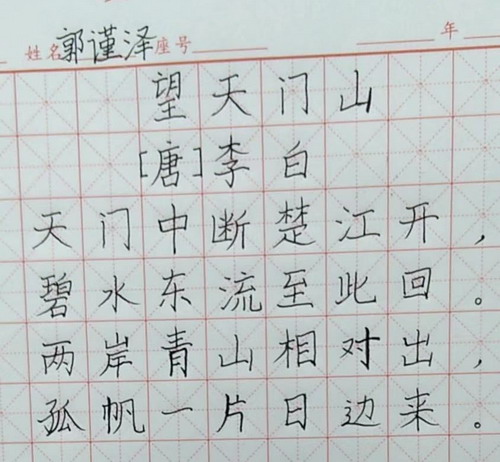 姓名郭谨泽座号 年
望天门山
[唐]李白
天门中断楚江开，
碧水东流至此回。
两岸青山相对出，
孤帆一片日边来。